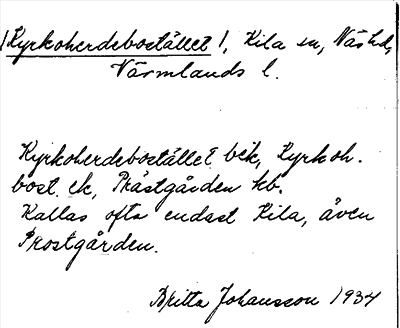 /Kyrkoherdebostället/, Kila sn, Näs hd,
Värmlands l.
Kyrkoherdebostället bik, Kyrkoh.
bost. ek, Prästgården kb.
Kallas ofta endast Kila, även
Prostgården.
Britta Johansson 1934